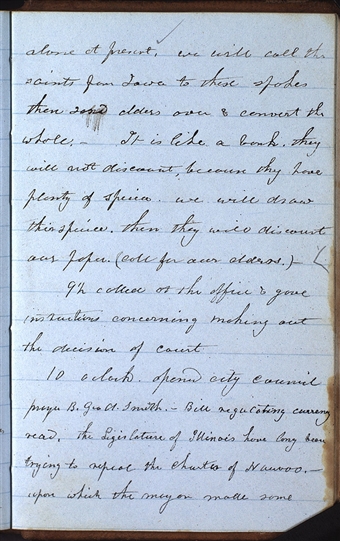 alone at present, we will call the
saints from Iowa to these spokes
then send elders over & convert the
whole. – It is like a bank. they
will not discount, becaus they have
plenty of specice. we will draw
this speice. then they will discount
our paper. (call for our elders.) –
9½ called at the office & gave
instructions concerning making out
the decision of court
10 oclock. opend city council
prayer B. Geo A. Smith. – Bill regulating currency
read. the Legislature of Illinois have long been
trying to repeal the Charter of Nauvoo. –
upon which the mayor made some